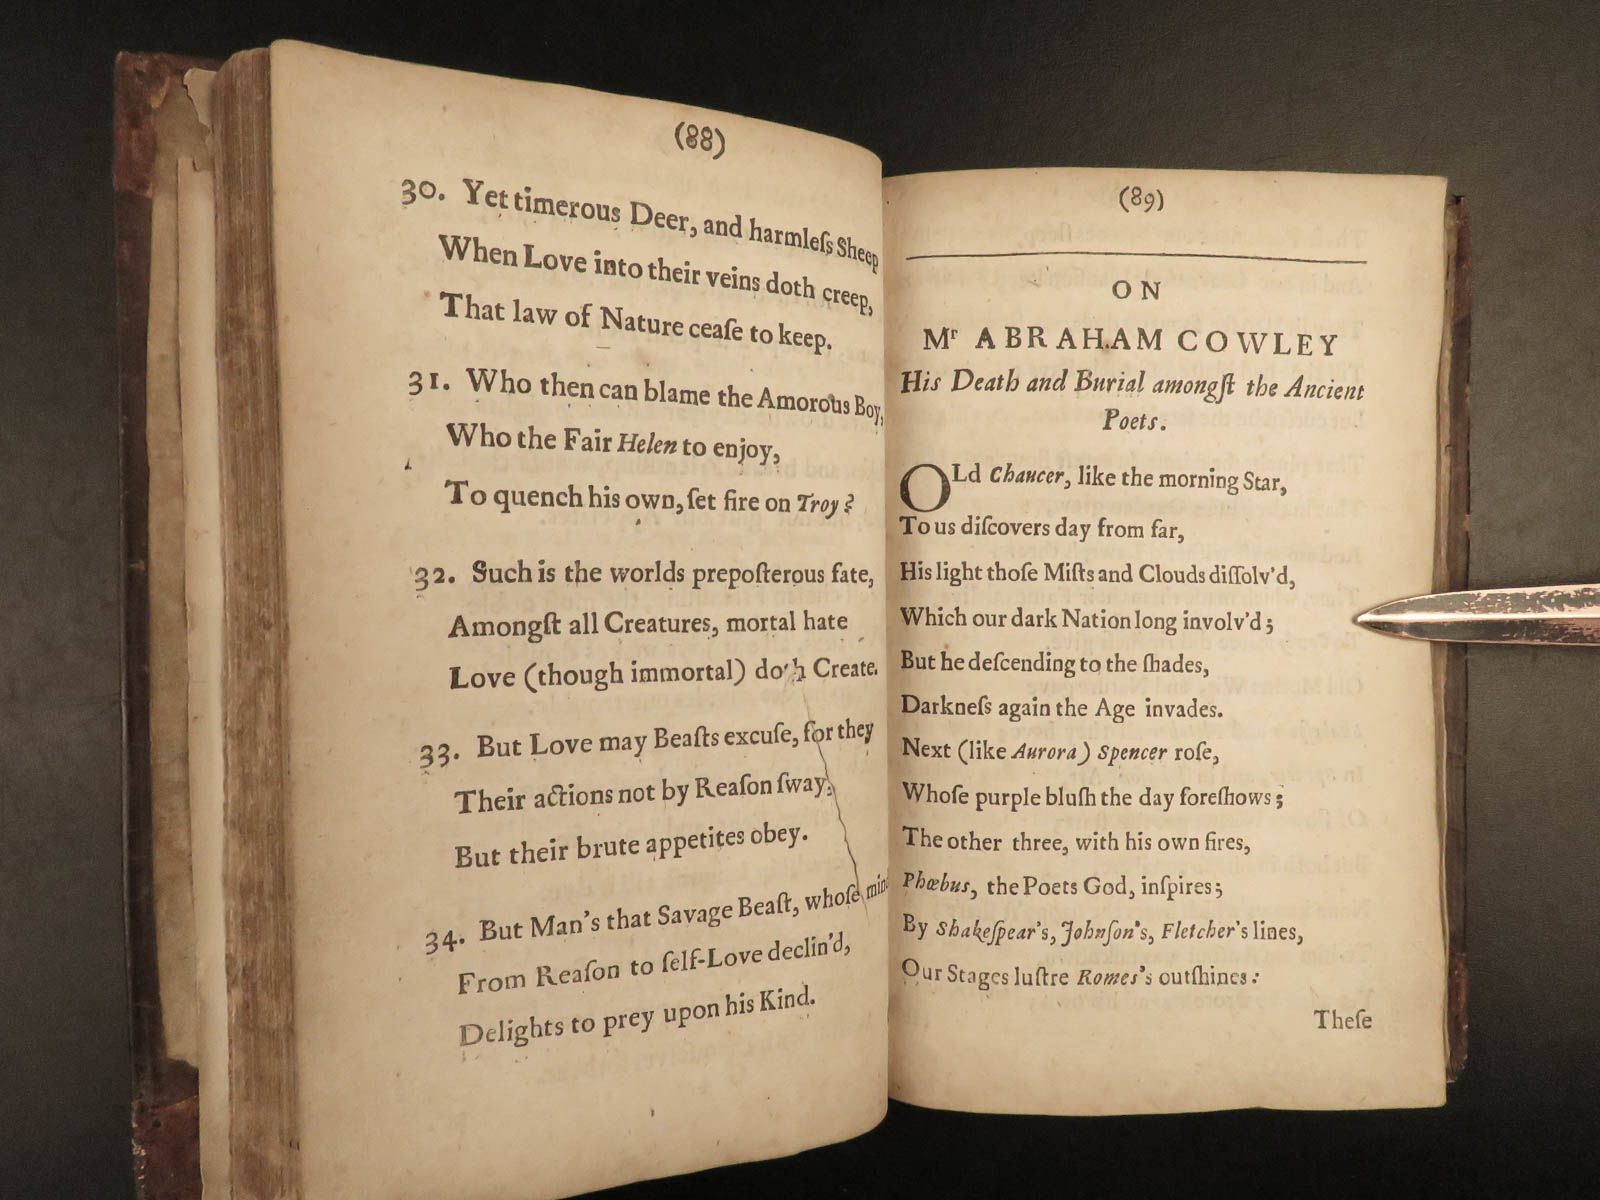 (88)
30. Yet timerous Deer, and harmleſs Sheep
When Love into their veins doth creep,
That law of Nature ceaſe to keep.
31. Who then can blame the Amorous Boy,
Who the Fair Helen to enjoy,
To quench his own, ſet fire on Troy?
32. Such is the worlds prepoſterous fate,
Amongſt all Creatures, mortal hate
Love (though immortal) doth Create.
33. But Love may Beaſts excuſe, for they
Their actions not by Reaſon ſway,
But their brute appetites obey.
34. But Man's that Savage Beaſt, whoſe mind
From Reaſon to ſelf-Love declin'd,
Delights to prey upon his Kind.
(89)
ON
Mr ABRAHAM COWLEY
His Death and Burial amongſt the Ancient
Poets.
OLd Chaucer, like the morning Star,
To us diſcovers day from far,
His light thoſe Miſts and Clouds diſſolv'd,
Which our dark Nation long involv'd;
But he deſcending to the ſhades,
Darkneſs again the Age invades.
Next (like Aurora) Spencer roſe,
Whoſe purple bluſh the day foreſhows;
The other three, with his own fires,
Phœbus, the Poets God, inſpires;
By Shakeſpear's, Johnſon's, Fletcher's lines,
Our Stages luſtre Romes's outſhines:
Theſe